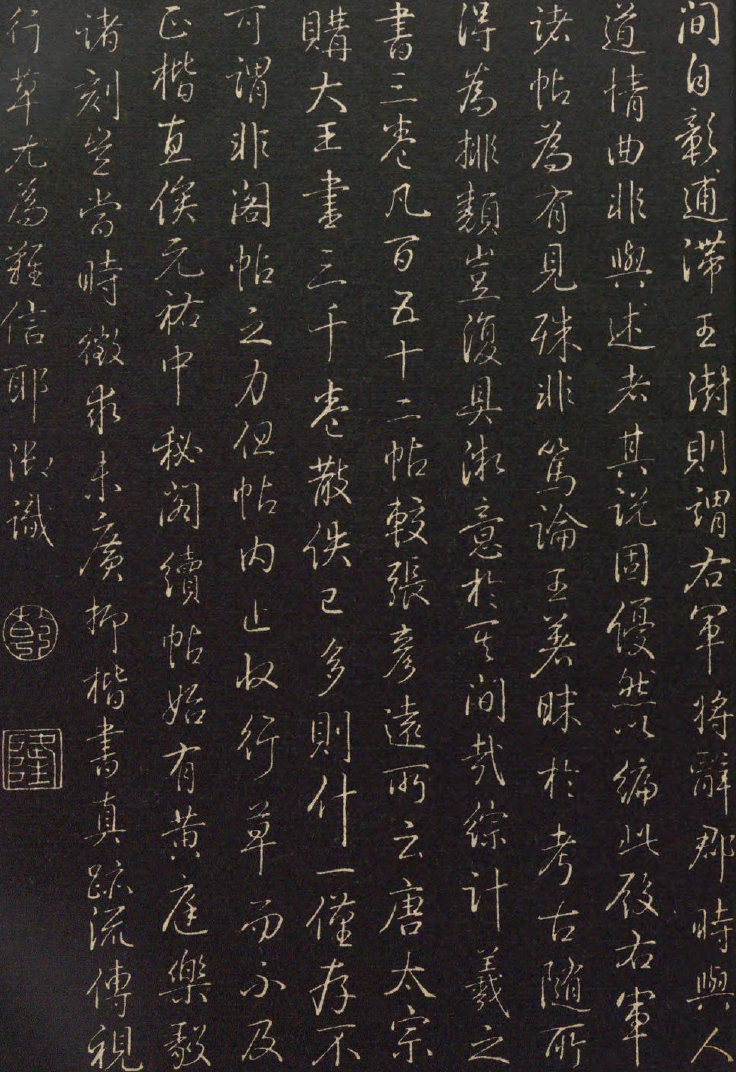 间自彰逋滞王澍則謂右軍将辭郡時與人
道情曲非與述者其說固優然以編此段右軍
諸帖為有見殊非篤論王著昧於考古隨所
得為排類豈復具深意於其间哉綜計羲之
書三卷凡百五十二帖較張彦遠所云唐太宗
購大王書三千卷散佚已多則什一僅存不
可謂非閣帖之力但帖内止收行草而不及
正楷直俟元祐中秘閣續帖始有黄庭樂毅
諸刻豈當時徵求未廣抑楷書真跡流傳視
行草尤為難信耶御識
乾
隆